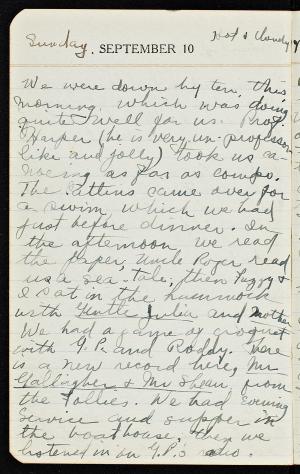 Sunday, SEPTEMBER 10 Hot & Cloudy
We were down by ten, this
morning, which was doing
quite well for us. Prof.
Harper (he is very un-professor
like and jolly) took us ca-
noeing as far as camps.
The came over for
a swim, which we had
just before dinner. In
the afternoon, we read
the paper, Uncle Roger read
us a sea-tale, then Fuzzy &
I sat in the hammock
with Julia and Mother
We had a game of croquet
with G.P. and Roddy. There
is a new record here, Mr.
Gallagher & Mr. Shean, from
the Follies. We had evening
service and supper in
the boathouse, then we
listened in on G.P.'s radio.